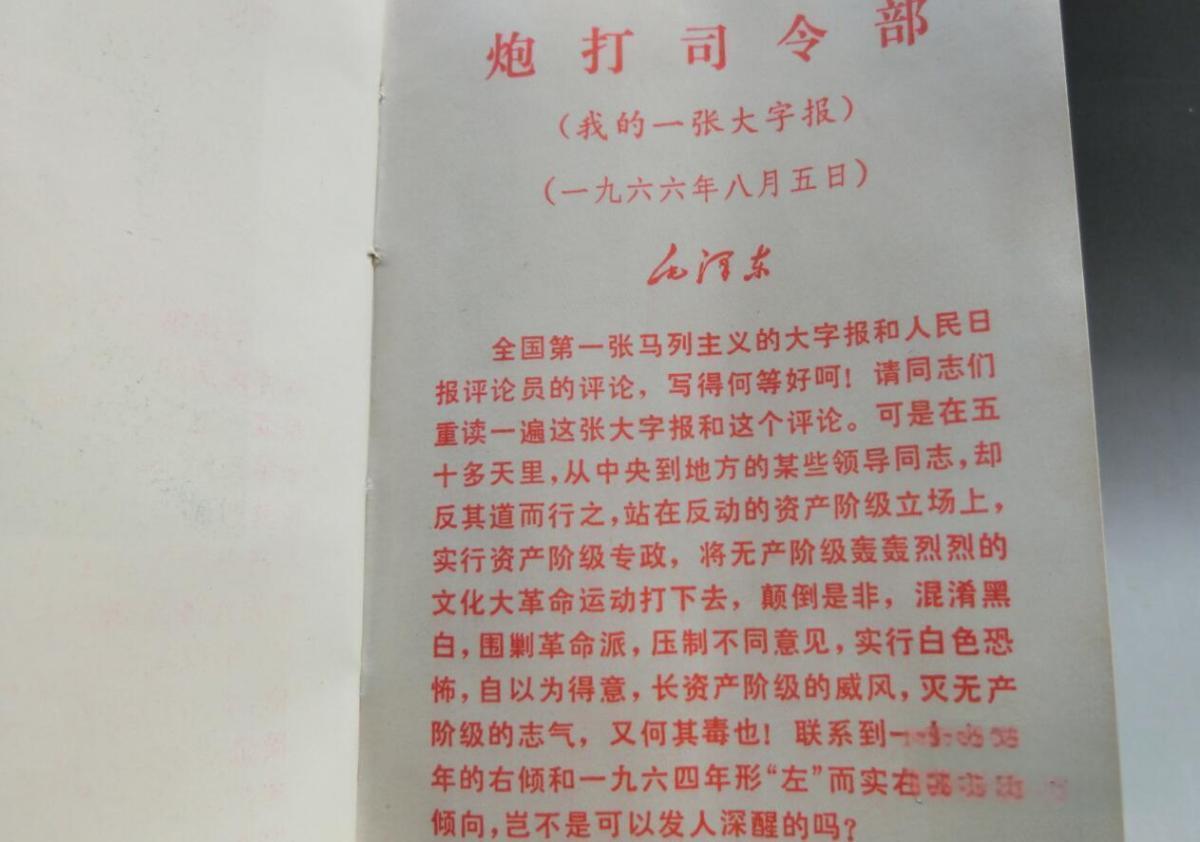 炮打司令部
（我的一张大字报）
（一九六六年八月五日）
毛泽东
全国第一张马列主义的大字报和人民日
报评论员的评论，写得何等好呵！请同志们
重读一遍这张大字报和这个评论。可是在五
十多天里，从中央到地方的某些领导同志，却
反其道而行之，站在反动的资产阶级立场上，
实行资产阶级专政，将无产阶级轰轰烈烈的
文化大革命运动打下去，颠倒是非，混淆黑
白，围剿革命派，压制不同意见，实行白色恐
怖，自以为得意，长资产阶级的威风，灭无产
阶级的志气，又何其毒也！联系到一
年的右倾和一九六四年形“左”而实右
倾向，岂不是可以发人深醒的吗？